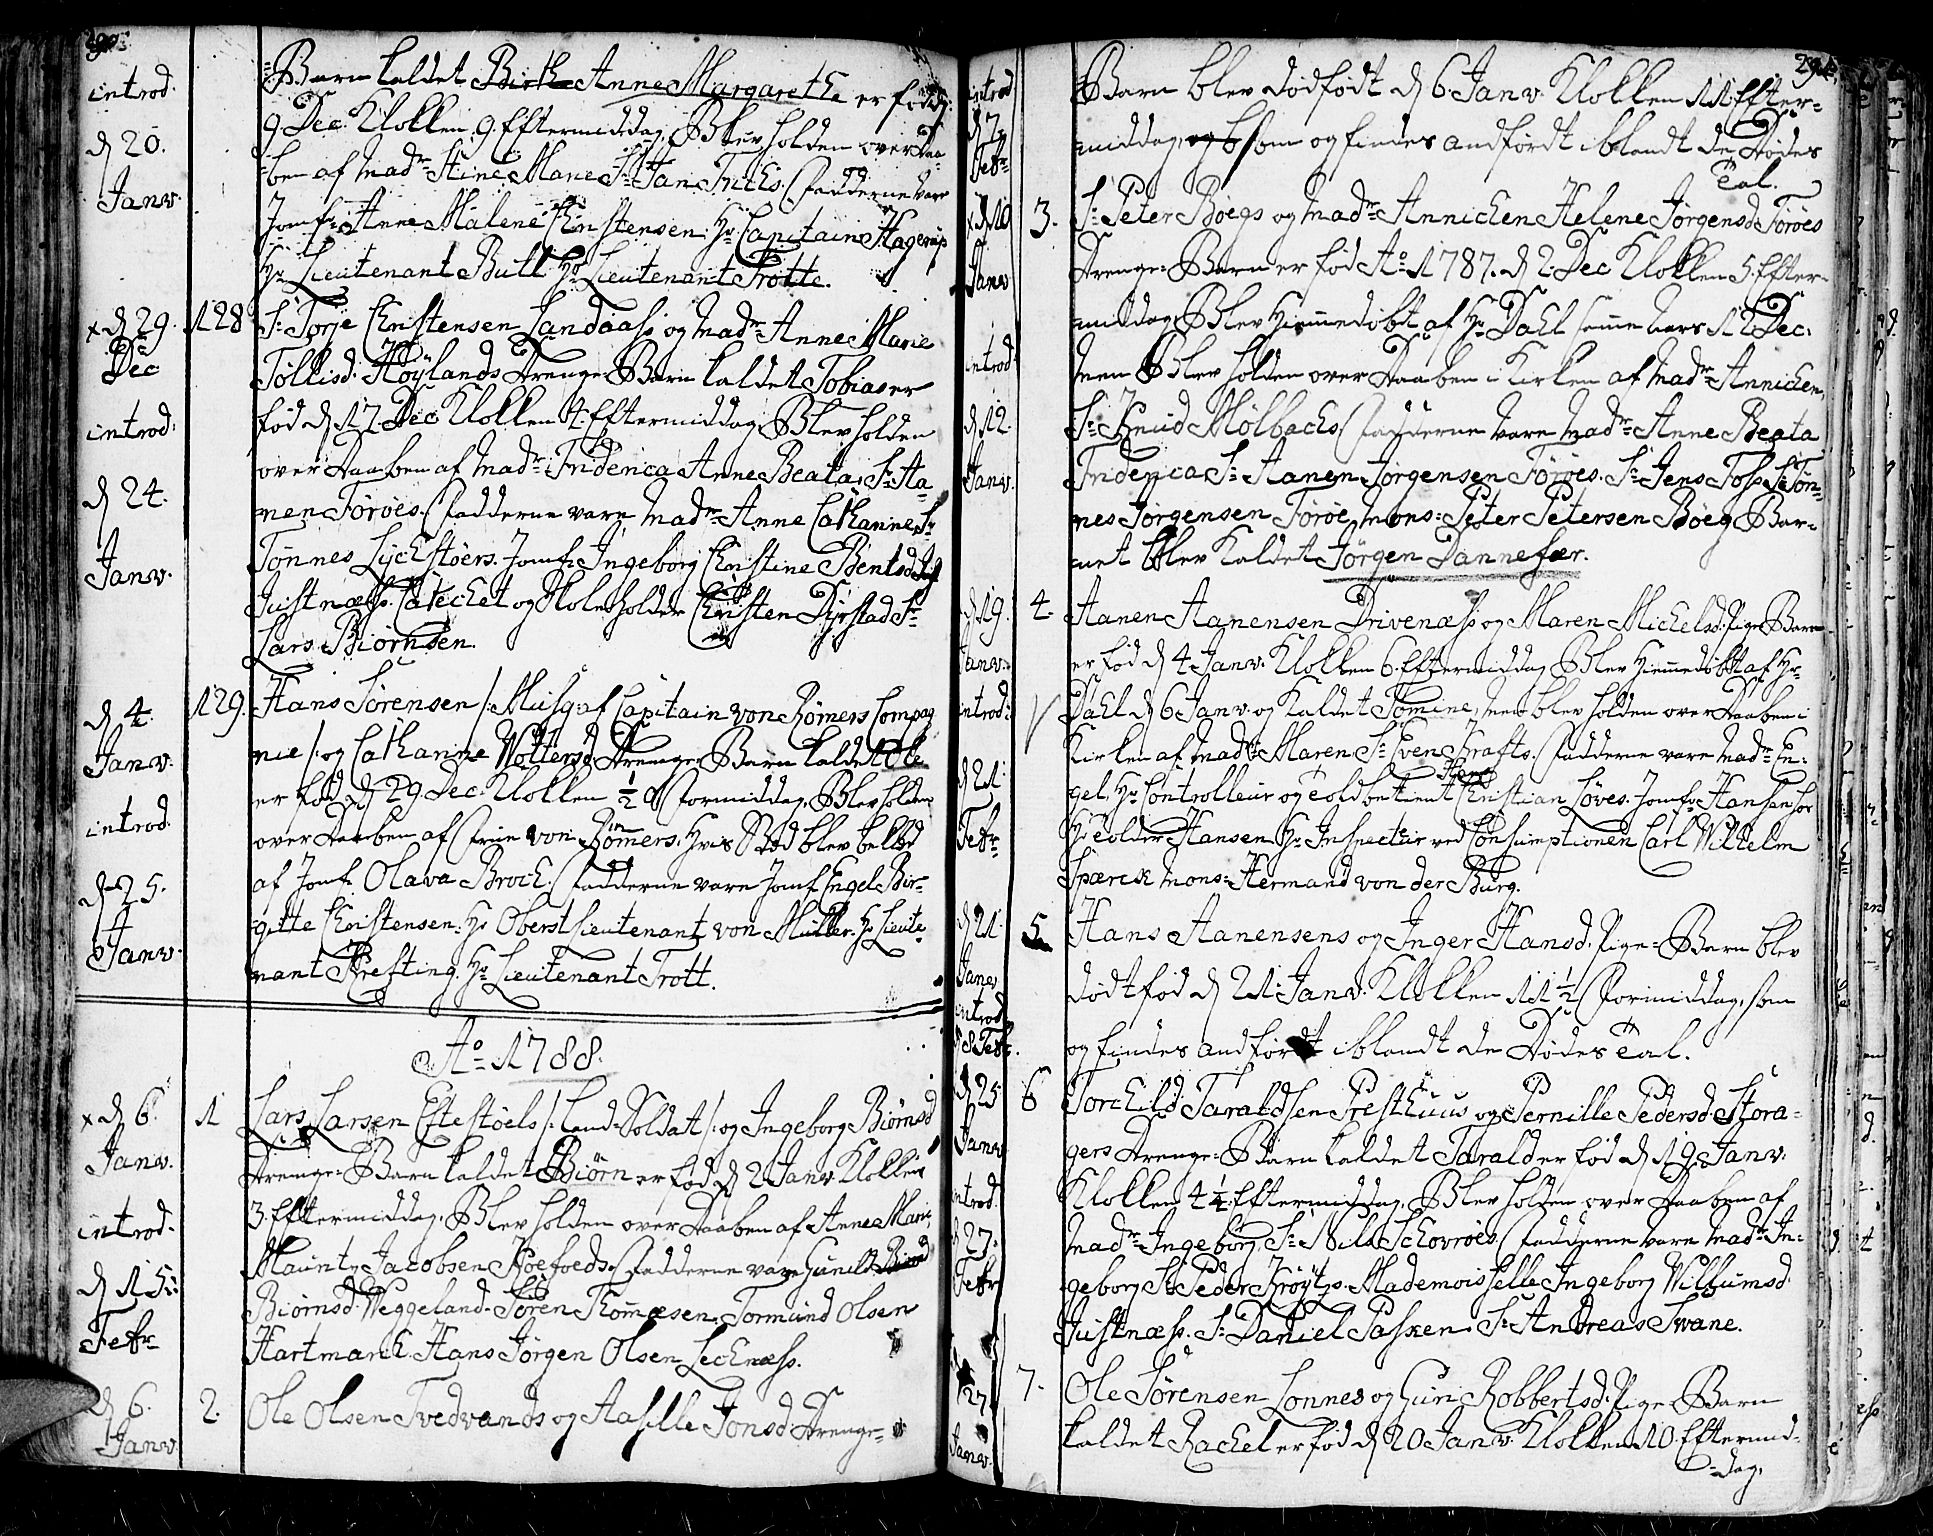 290.
introd.
d 20.
Janv.
=Barn kaldet Anne Margarethe er fød d
9 Dec. Klokken 9. Eftermiddag, Blev holden over Daa=
=ben af Madme Stine Marie Sr Jan Friis. Fadderne vare
Jomfr Anne Malene Christensen. Hr Capitaine Hagerup
Hr Lieutenant Bull Hr Lieutenant Trotte.
x d 29. Dec
introd.
d 24.
Janv.
128 Sr Torje Christensen Landaass og Madme Anne Marie
Tøllisd. Høylands Drenge=Barn kaldet Tobias er
fød d 17. Dec Klokken 4. Eftermiddag, Blev holden
over Daaben af Madme Friderica Anne Beata, Sr Aa=
nen Førøes. Fadderne vare Madme Anne Catharine Sr
Tønnes Lyckstøers. Jomfr Ingeborg Christine Bentsd
Justnæss. Catechet og Skoleholder Christen Dyrstad Sr
Lars Biørnsen.
d 4.
Janv.
introd.
d 25.
Janv.
129. Hans Sørensen /: Musq: af Capitain von Rømers Compag
nie /: og Catharine Woltersd Drenge Barn kaldet Ole
er fød d 29 Dec. Klokken ½ 9 Formiddag, Blev holden
over Daaben af Fruе von Rømers. Hvis Stød blev beklæd
af Jomfr. Olava Broch. Fadderne vare Jomfr Engel Bir=
gitte Christensen. Hr Oberstlieutenant von Müller. Hr Lieute
nant Krefting. Hr Lieutenant Trott.
Ao 1788.
x d 6.
Janv.
introd.
d 15.
Febr
1 Lars Larsen Eftestøels /: Land=Soldat /: og Ingeborg Biørnsd
Drenge=Barn kaldet Biørn er fød d 2 Janv Klokken
3. Eftermiddag, Blev holden over Daaben af Anne Marie
Mauritz Jacobsen Hoefoeds. Fadderne vare Gunild
Biørnsd. Weggeland. Søren Thommesen. Tormund Olsen
Hartmark. Hans Jørgen Olsen Lecknæss.
d 6.
Janv.
2. Ole Olsen Tvedvands og Aasille Jonsd. Drenge=
introd
d 7
Febr
291.
Barn blev dødfødt d 6. Janv. Klokken 11. Efter=
middag, som og findes andførdt iblandt de Dødes
Tal.
x d 10
Janv
introd
d 12.
Janv.
3. Sr Peter Boegs og Madme Annichen Helene Jørgensd. Førøes
Drenge=Barn er fød Ao 1787. d 2. Dec Klokken 5. Efter=
middag, Blev Hiemmedøbt af Hr Dahl samme Aars d 12 Dec.
Men Blev holden over Daaben i Kirken af Madme Annichen
Sr Knud Mølbachs. Fadderne vare Madme Anne Beata
Friderica Sr Aanen Jørgensen Førøes. Sr Jens Foss. Sr Tøn=
nes Jørgensen Førøe, Mons: Peter Petersen Boeg. Bar=
net blev Kaldet Jørgen Dannefær.
d 19.
Janv.
introd:
d 21.
Febr
4. Aanen Aanensen Drivenæss og Maren Michelsd. Pige=Barn
er fød d 4 Janv. Klokken 6. Eftermiddag Blev Hiemmedøbt af Hr
Dahl d 6 Janv. og Kaldet Tomine, Men blev holden over Daaben i
Kirken af Madme Maren Sr Even Krafts. Fadderne vare Madme En=
gel, Hr Controlleur og Toldbetient Christian Løves. Jomfr Hansen for
Hr Tolder Hansen Hr Inspecteur ved Consumptionen Carl Wilhelm
Spærck Mons: Hermand von der Burg.
d 21.
Janv
introd
8 Febr.
5. Hans Aanensens og Inger Hansd. Pige=Barn blev
dødtfød d 21. Janv. Klokken 11½ Formiddag, som
og findes andført iblandt de Dødes Tal.
d 25
Janv
introd.
d 27.
Febr
6 Torchild Taraldsen Presthuus og Pernille Pedersd. Stora=
gers Drenge=Barn kaldet Tarald er fød d 19. Janv.
Klokken 4¼ Eftermiddag, Blev holden over Daaben af
Madme Ingeborg, Sr Nils Schovrøes. Fadderne vare Madme In=
geborg Sr Peder Krøytz. Mademoisselle Ingeborg Willumsd.
Justnæss. Sr Daniel Passen. Sr Andreas Swane.
27
Janv.
7. Ole Sørensen Lonnes og Guri Robbertsd. Pige=Barn
kaldet Rachel er fød d 20 Janv. Klokken 10. Eftermid=
=dag,